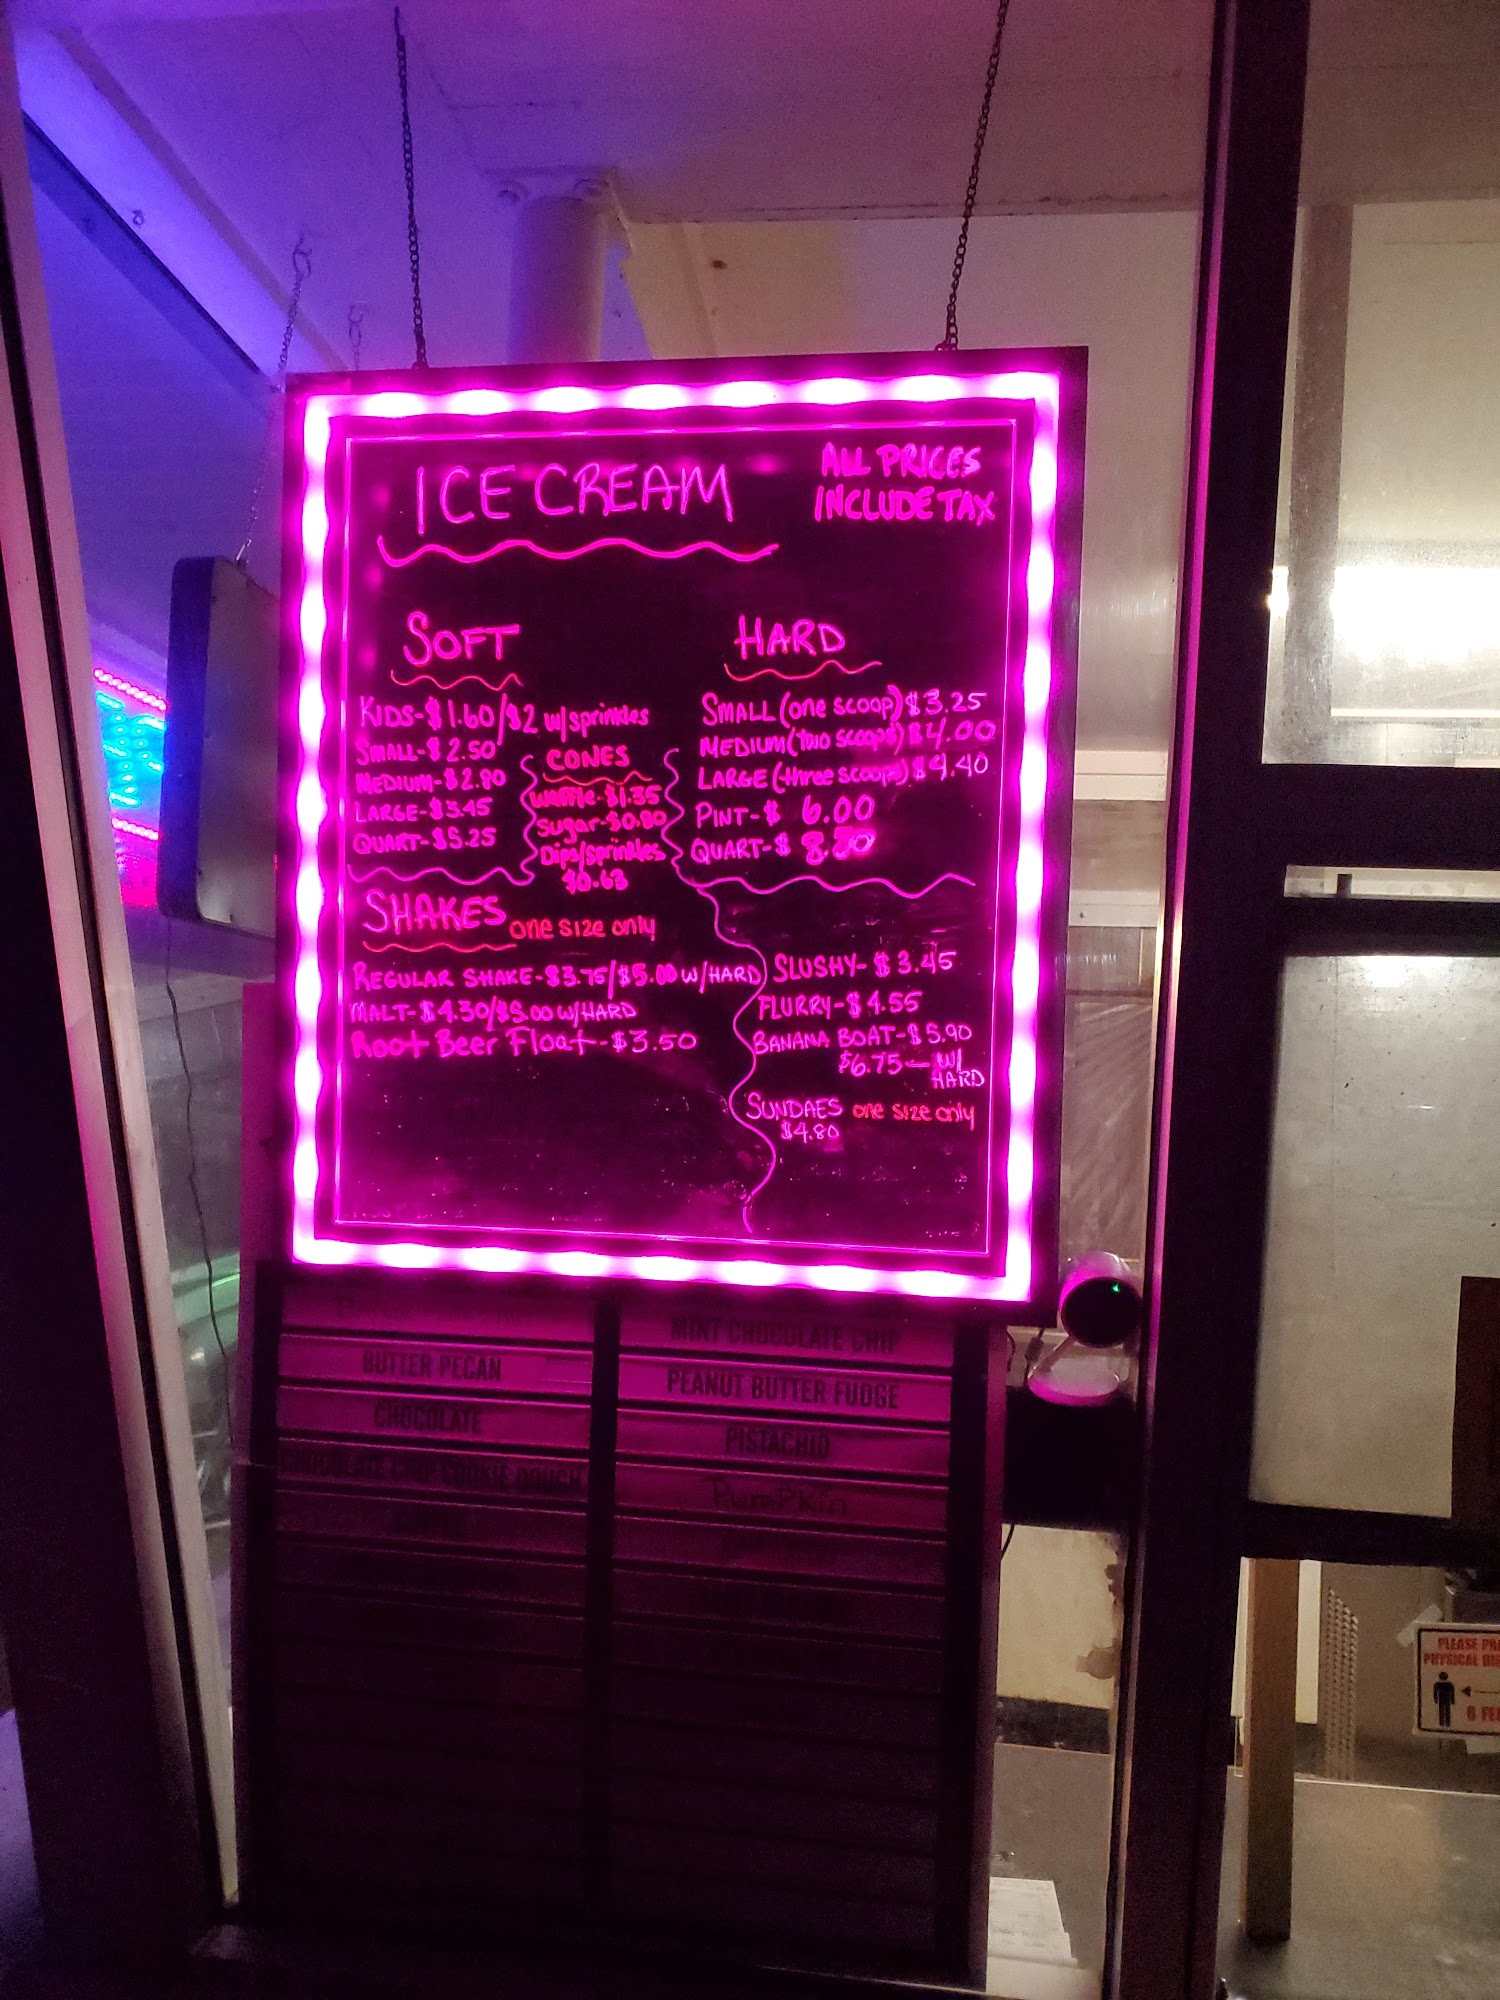 ICE CREAM
ALL PRICES
INCLUDE TAX
SOFT
KIDS-$1.60/$2 w/sprinkles
SMALL-$2.50
MEDIUM-$2.80
LARGE-$3.45
QUART-$5.25
CONES
Waffle-$1.35
Sugar-$0.80
Dips/sprinkles
$0.63
HARD
SMALL (one scoop) $3.25
MEDIUM (two scoops) $4.00
LARGE (three scoops) $4.40
PINT-$ 6.00
QUART-$
SHAKES one size only
REGULAR SHAKE-$3.75/$5.00 W/HARD
MALT-$4.30/$5.00 W/HARD
Root Beer Float-$3.50
SLUSHY-$3.45
FLURRY-$4.55
BANANA BOAT-$5.90
$6.75 — W/
HARD
SUNDAES one size only
$4.80
BUTTER PECAN
CHOCOLATE
CHOCOLATE CHIP COOKIE DOUGH
MINT CHOCOLATE CHIP
PEANUT BUTTER FUDGE
PISTACHIO
PUMPKIN
PLEASE
PHYSICAL
6